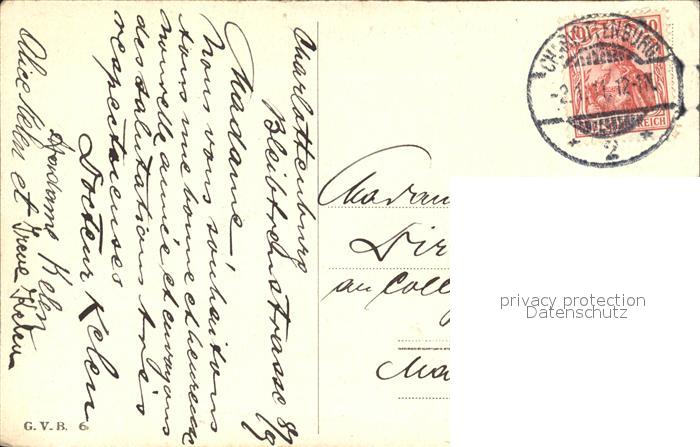 Charlottenburg
Bleibtreustrasse 8/9
Madame
Nous vous souhaitons
tous une bonne et heureuse
nouvelle année et envoyons
des salutations très
respectueuses
Docteur Kelen
Madame Kelen
Alice Kelen et Irene Kelen
G. V. B. 6
CHARLOTTENBURG
12-1N.
* 2 *
10
REICH
Madam
Dir
au Coll
Ma
privacy protection
Datenschutz